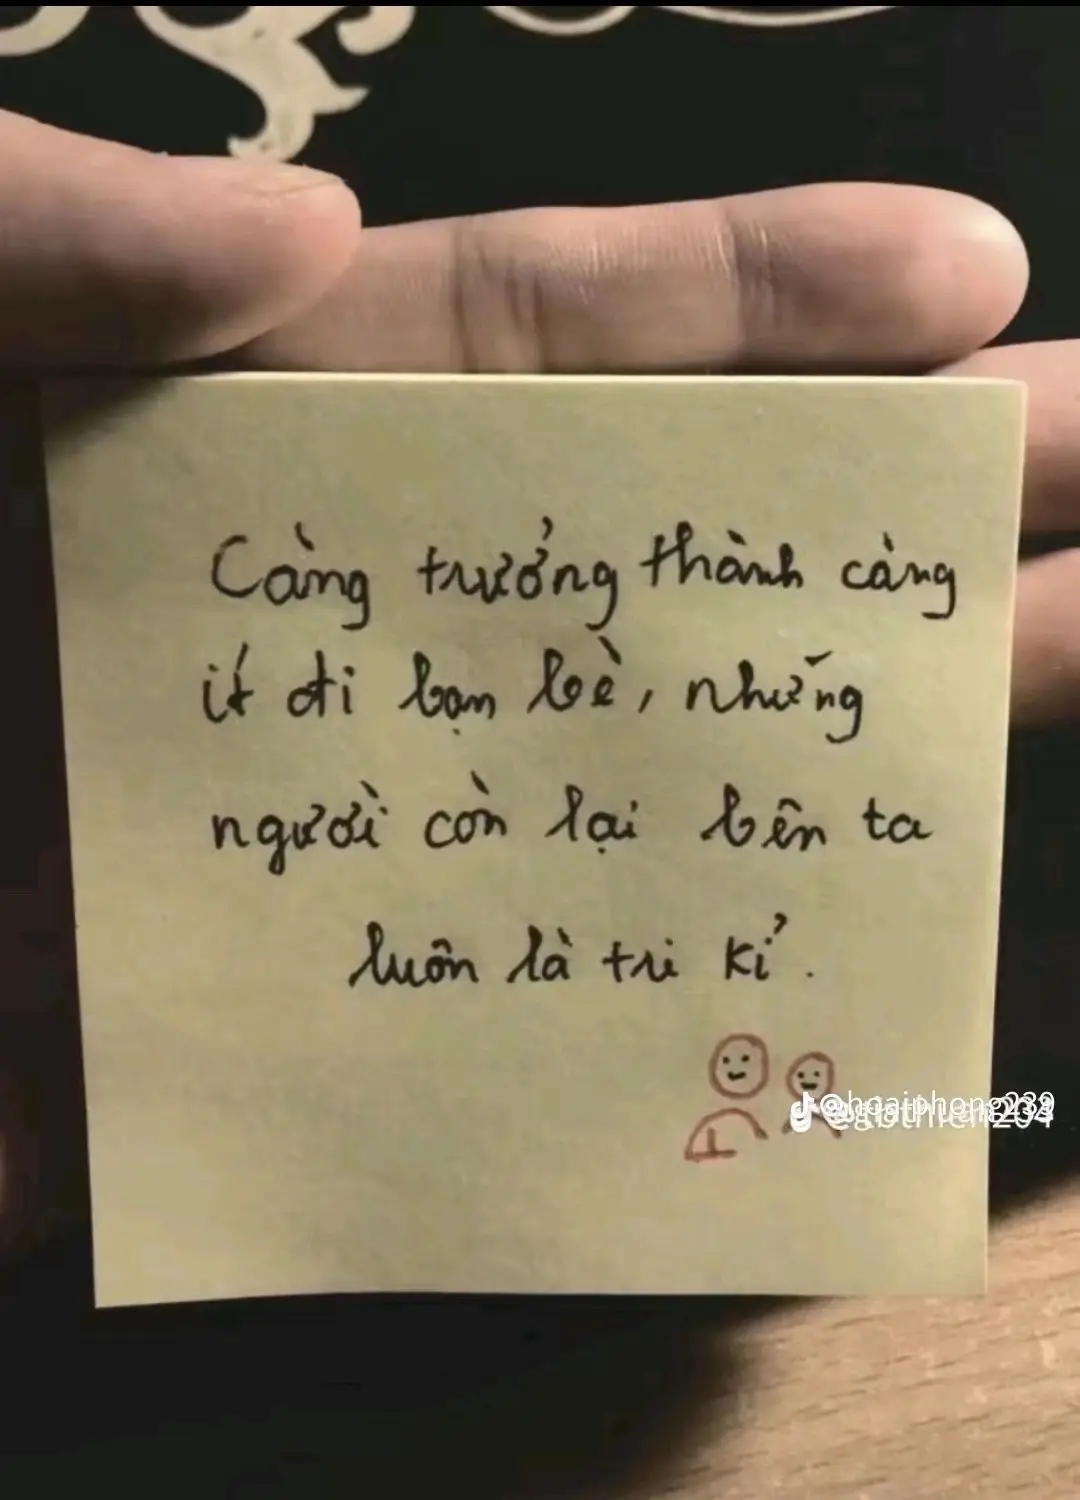 Càng trưởng thành càng
ít đi bạn bè, những
người còn lại bên ta
luôn là tri kỉ.
@hoaiphong239